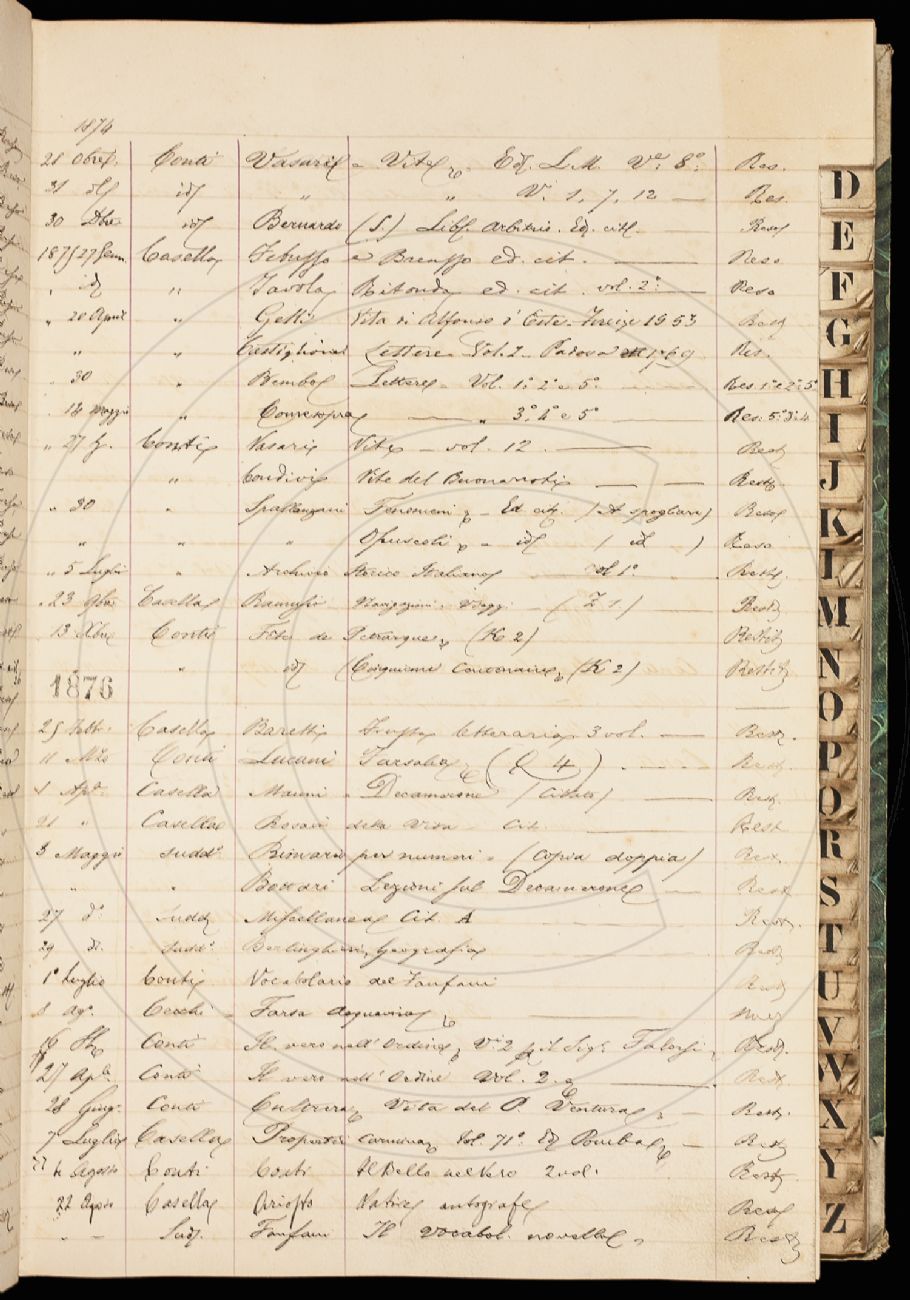 1874
28 8bre. Conti Vasari - Vite, Ed. L. M. Vo. 8o. Res.
31 id id " " V. 1, 7, 12 — Res.
30 Dbre id Bernardo (S.) Lib. arbitrio. Ed. cit. — Rest
1875 27 Genn. Casella e ed. cit. — Reso
" id " Tavola Ritonda ed. cit. vol. 2o — Reso
" 20 Aprile " Gelli Vita di Alfonso d'Este. Firenze 1553 Rest
" " " Castiglione Lettere Vol. 2. Padova 1769 Res.
" 30 " Bembo Lettere - Vol. 1o 2o e 5o Res 1o e 2o 5o
" 14 maggio " Come sopra — " 3o. 4o e 5o Res. 5o 3o 4
" 27 Conti Vasari Vite — vol. 12 — Rest
" Condivi Vita del Buonarroti — — Rest.
" 30 " Spallanzani Fenomeni - Ed cit. (A spogliare) Rest
" " " Opuscoli - id ( id ) Reso
" 5 Luglio " Archivio Storico Italiano — Vol 1o Rest.
" 23 9bre Casella Ramusio Navigazioni. Viaggi — (Z 1.) Rest
" 13 Xbre Conti Fête de Petrarque (K 2) Restit
" id Cinquième Centenaire (K 2) Restit
1876
25 Febb. Casella Baretti Frusta letteraria 3 vol. — Rest.
11 Mzo Conti Lucani Farsalia ( 4) Rest
1 Apr. Casella Manni - Decamerone (Citato) — Rest.
21 " Casella della Vita cit. — Rest
3 Maggio sudd.o per numeri - (Copia doppia) Rest.
" " Lezioni sul Decamerone — Rest
27 do. sudd Miscellanea Cit. A Rest.
29 d. sudd.o Berlinghieri, Geografia Rest
1o Luglio Conti Vocabolario del Fanfani Rest
8 Ag. Cecchi - Farsa —
16 Conti Il vero nell'Ordine, Vo. 2 pil Sig. Rest.
27 Aple. Conti Il vero nell'Ordine Vol. 2. — Rest
28 Giug. Conti Cultrera Vita del P. Ventura — Rest.
7 Luglio Casella Propertii carmina, Vol. 71o Ed Pomba — Rest
4 Agosto Conti Conti Il Bello nel Vero 2 vol. Rest
22 Agosto Casella Ariosto Satire autografe Rest
" - Sud. Fanfani Il Vocabol. novello. Rest
D
E
F
G
H
I
J
K
L
M
N
O
P
Q
R
S
T
U
V
W
X
Y
Z